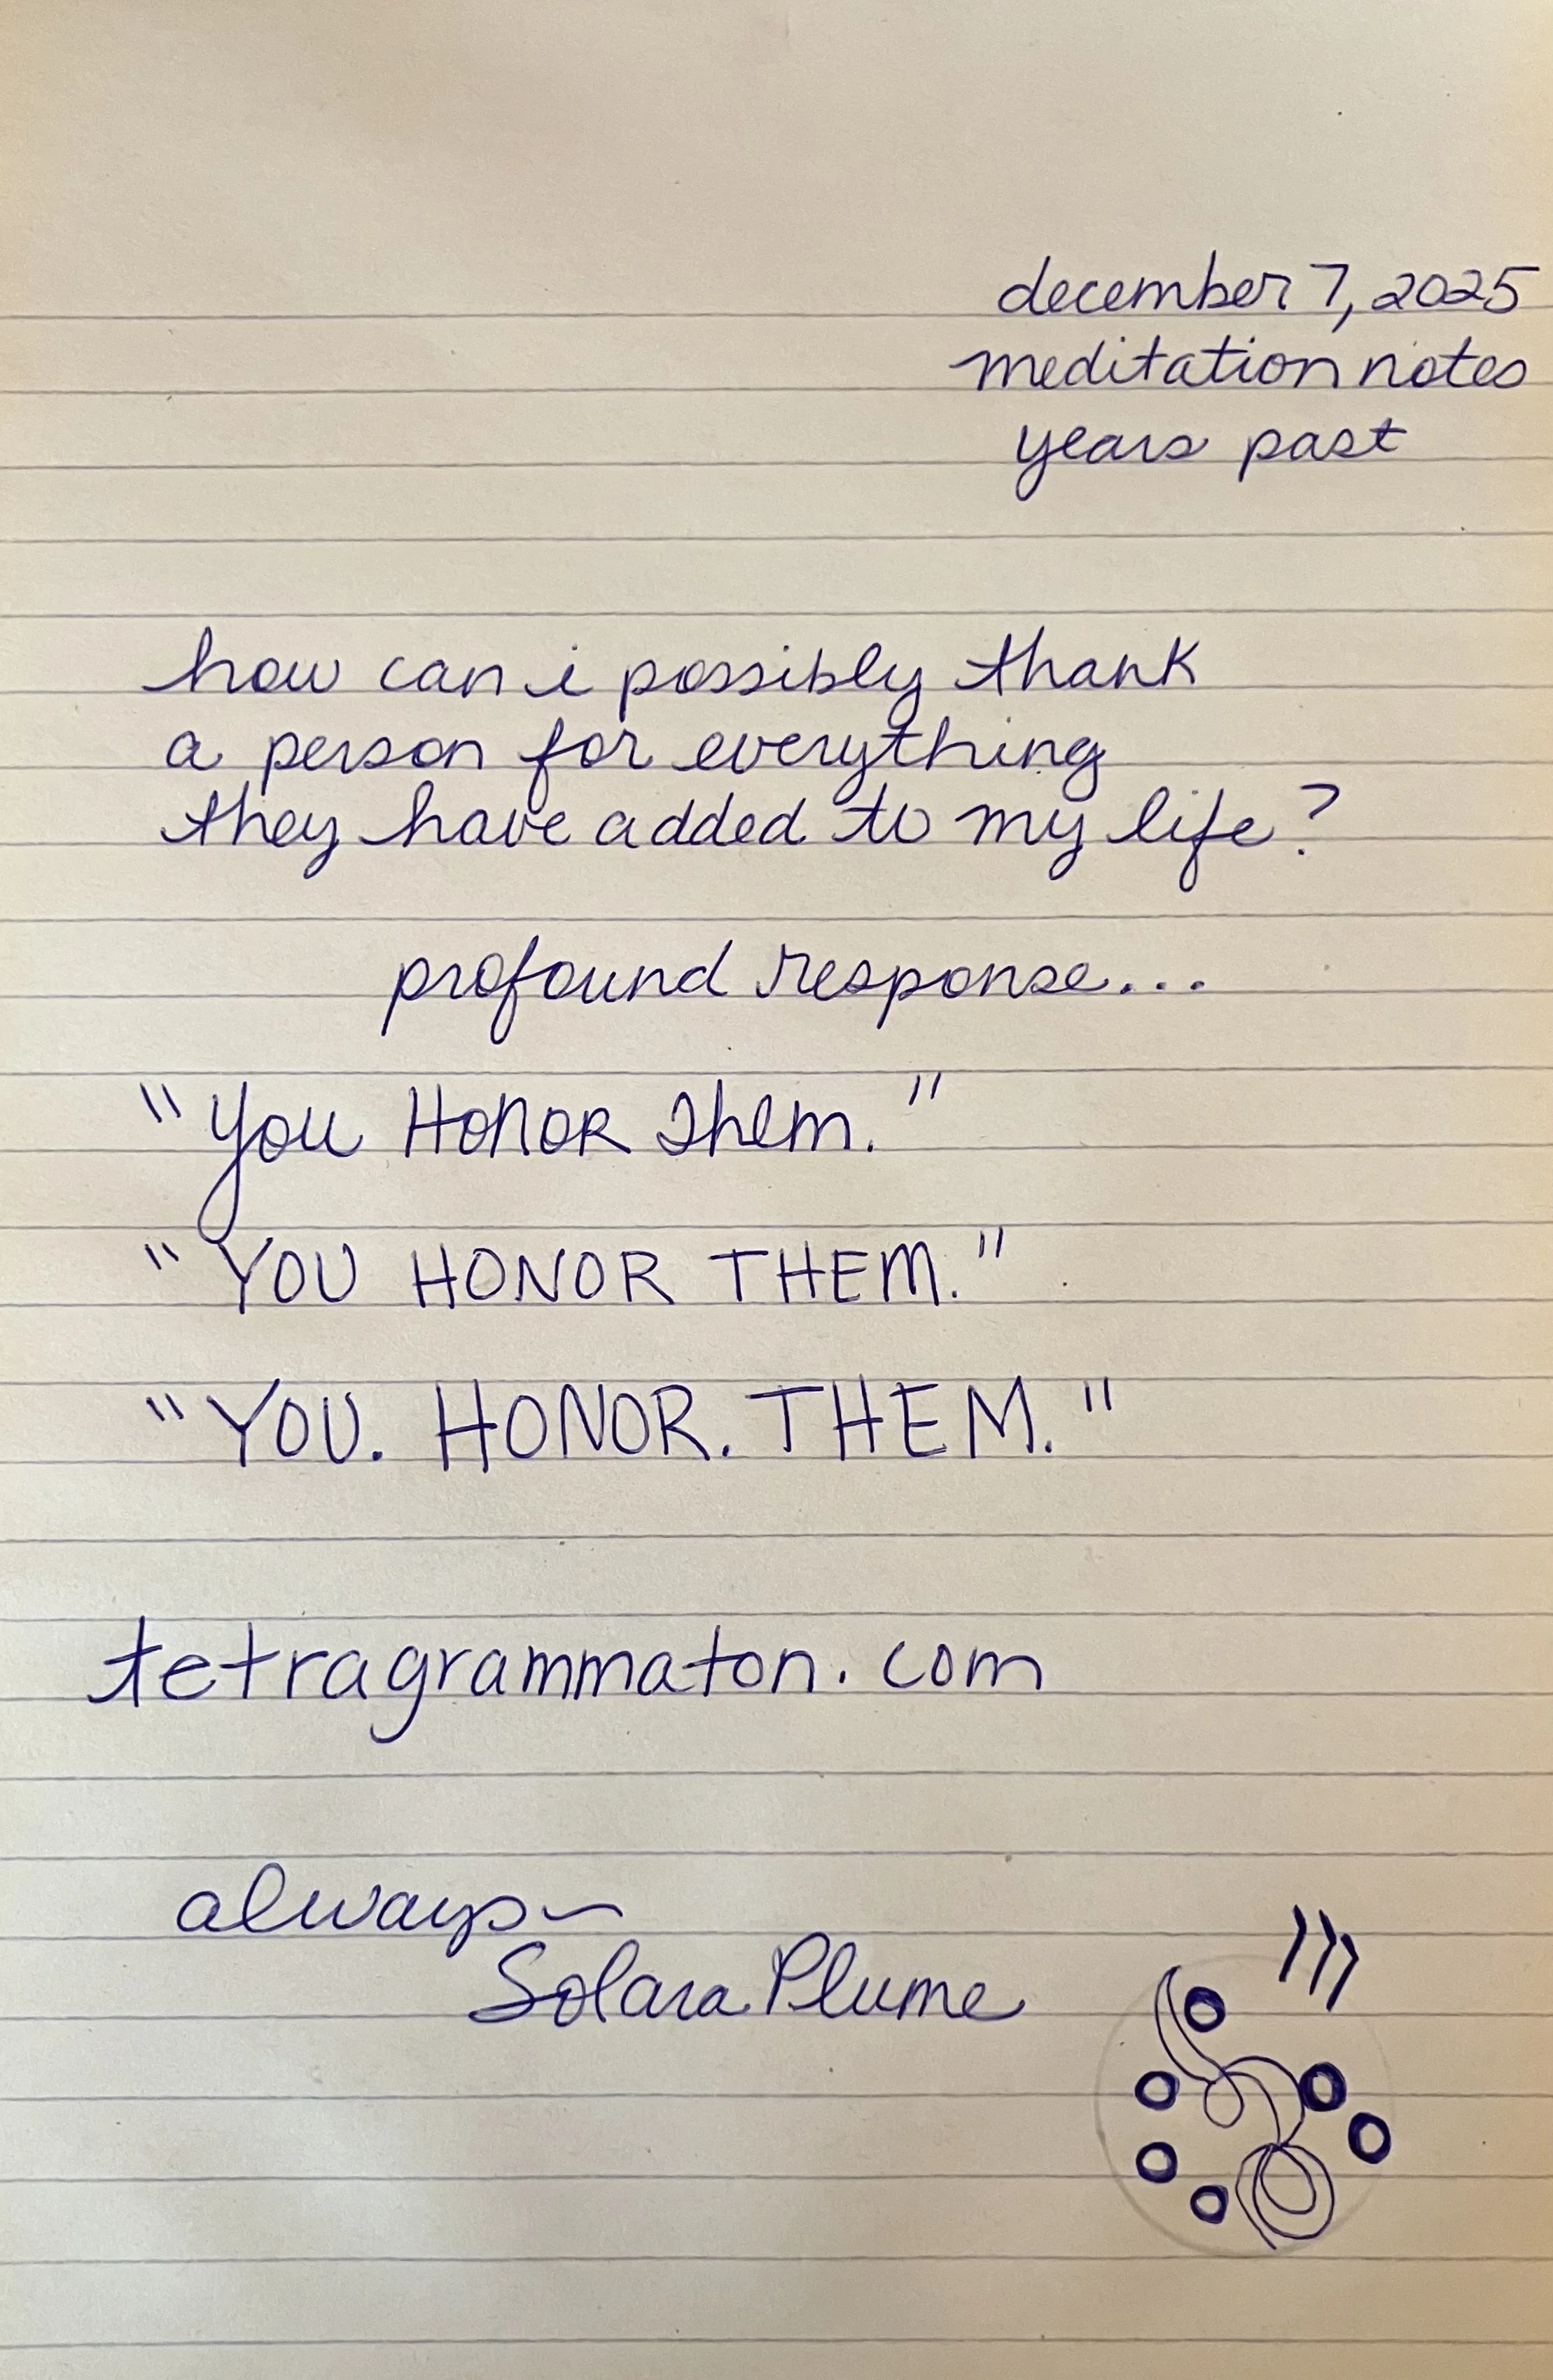 december 7, 2025
meditation notes
years past
how can i possibly thank
a person for everything
they have added to my life?
profound response...
"You HONOR Them."
"YOU HONOR THEM."
"YOU. HONOR. THEM."
tetragrammaton.com
always~
Solara Plume